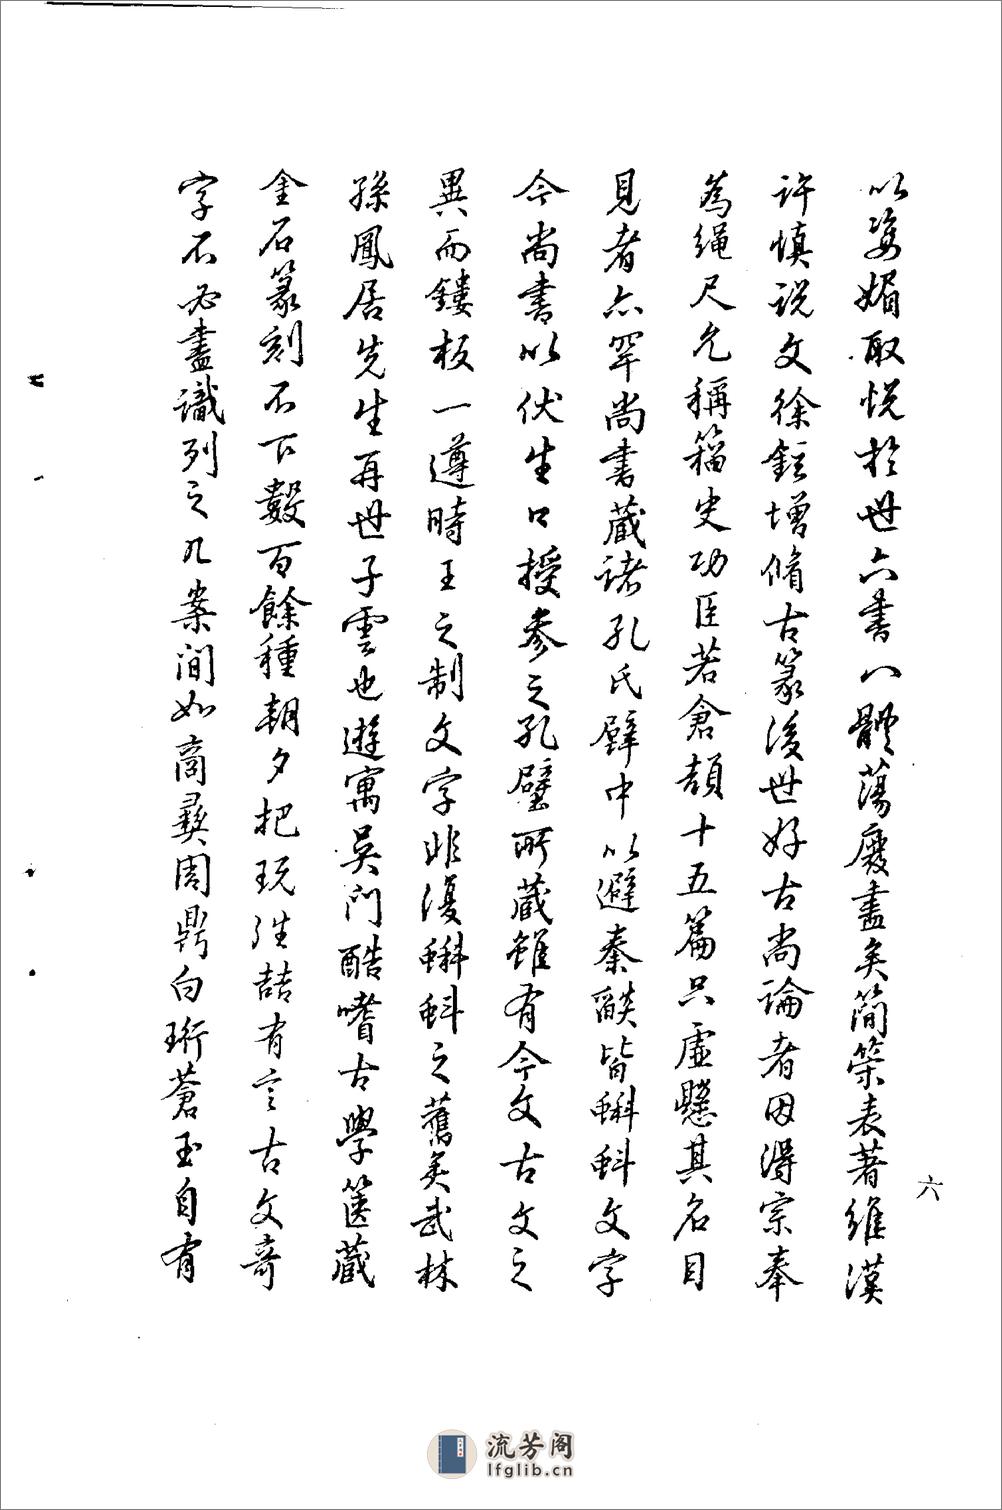 以姿媚取悅於世六書八體蕩廢盡矣簡策表著維漢
許慎說文徐鉉增脩古篆後世好古尚論者因得宗奉
為繩尺允稱籀史功臣若倉頡十五篇只虛懸其名目
見者亦罕尚書藏諸孔氏壁中以避秦燄皆蝌蚪文字
今尚書以伏生口授參之孔壁所藏雖有今文古文之
異而鏤板一遵時王之制文字非復蝌蚪之舊矣武林
孫鳳居先生再世子雲也遊寓吳門酷嗜古學篋藏
金石篆刻不下數百餘種朝夕把玩注喆有言古文奇
字不必盡識列之几案間如商彝周鼎白珩蒼玉自有
六
流芳阁
lfglib.cn